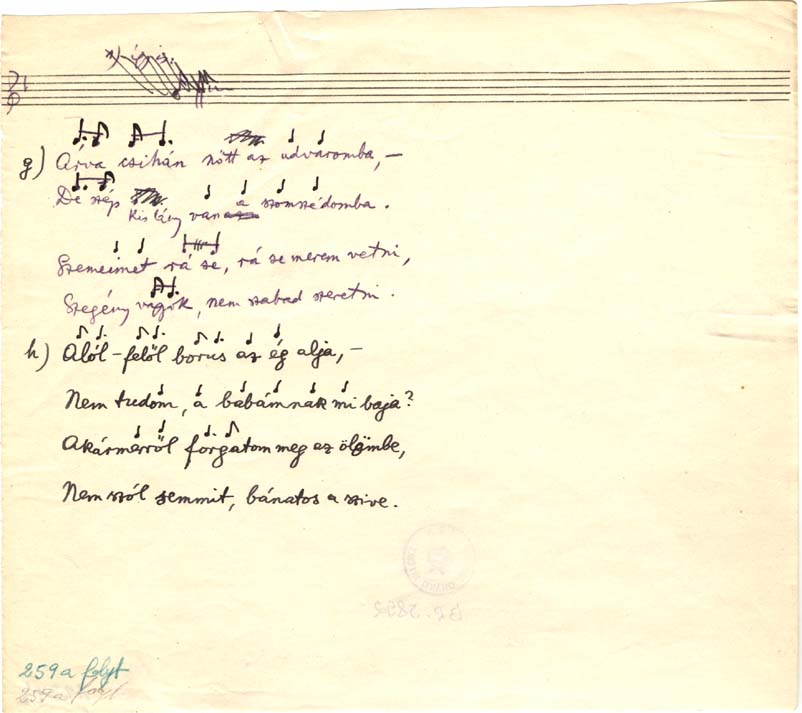 g) Árva csihán nőtt az udvaromba, –
De szép kis lány van a szomszédomba.
Szemeimet rá se, rá se merem vetni,
Szegény vagok, nem szabad szeretni.
h) Alól-felől borus az ég alja, –
Nem tudom, a babámnak mi baja?
Akármerről forgatom meg az ölömbe,
Nem szól semmit, bánatos a szive.
259a folyt
259a folyt